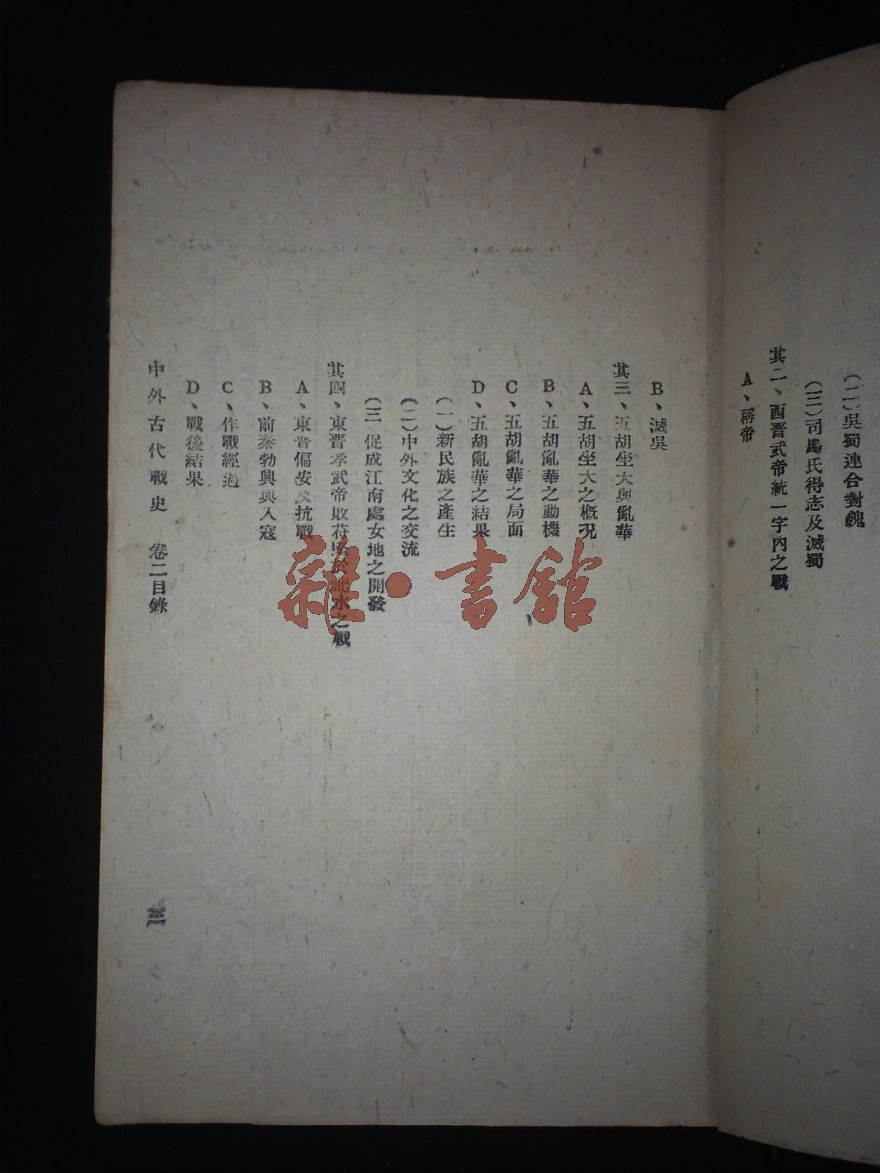 (二)吳蜀連合對魏
(三)司馬氏得志及滅蜀
其二、西晋武帝統一宇內之戰
A、稱帝
B、滅吳
其三、五胡坐大與亂華
A、五胡坐大之概況
B、五胡亂華之動機
C、五胡亂華之局面
D、五胡亂華之結果
(一)新民族之產生
(二)中外文化之交流
(三)促成江南處女地之開發
其四、東晋孝武帝敗苻堅於淝水之戰
A、東晋偏安及抗戰
B、前秦勃興與入寇
C、作戰經過
D、戰後結果
中外古代戰史 卷二目錄
三
雜·書館